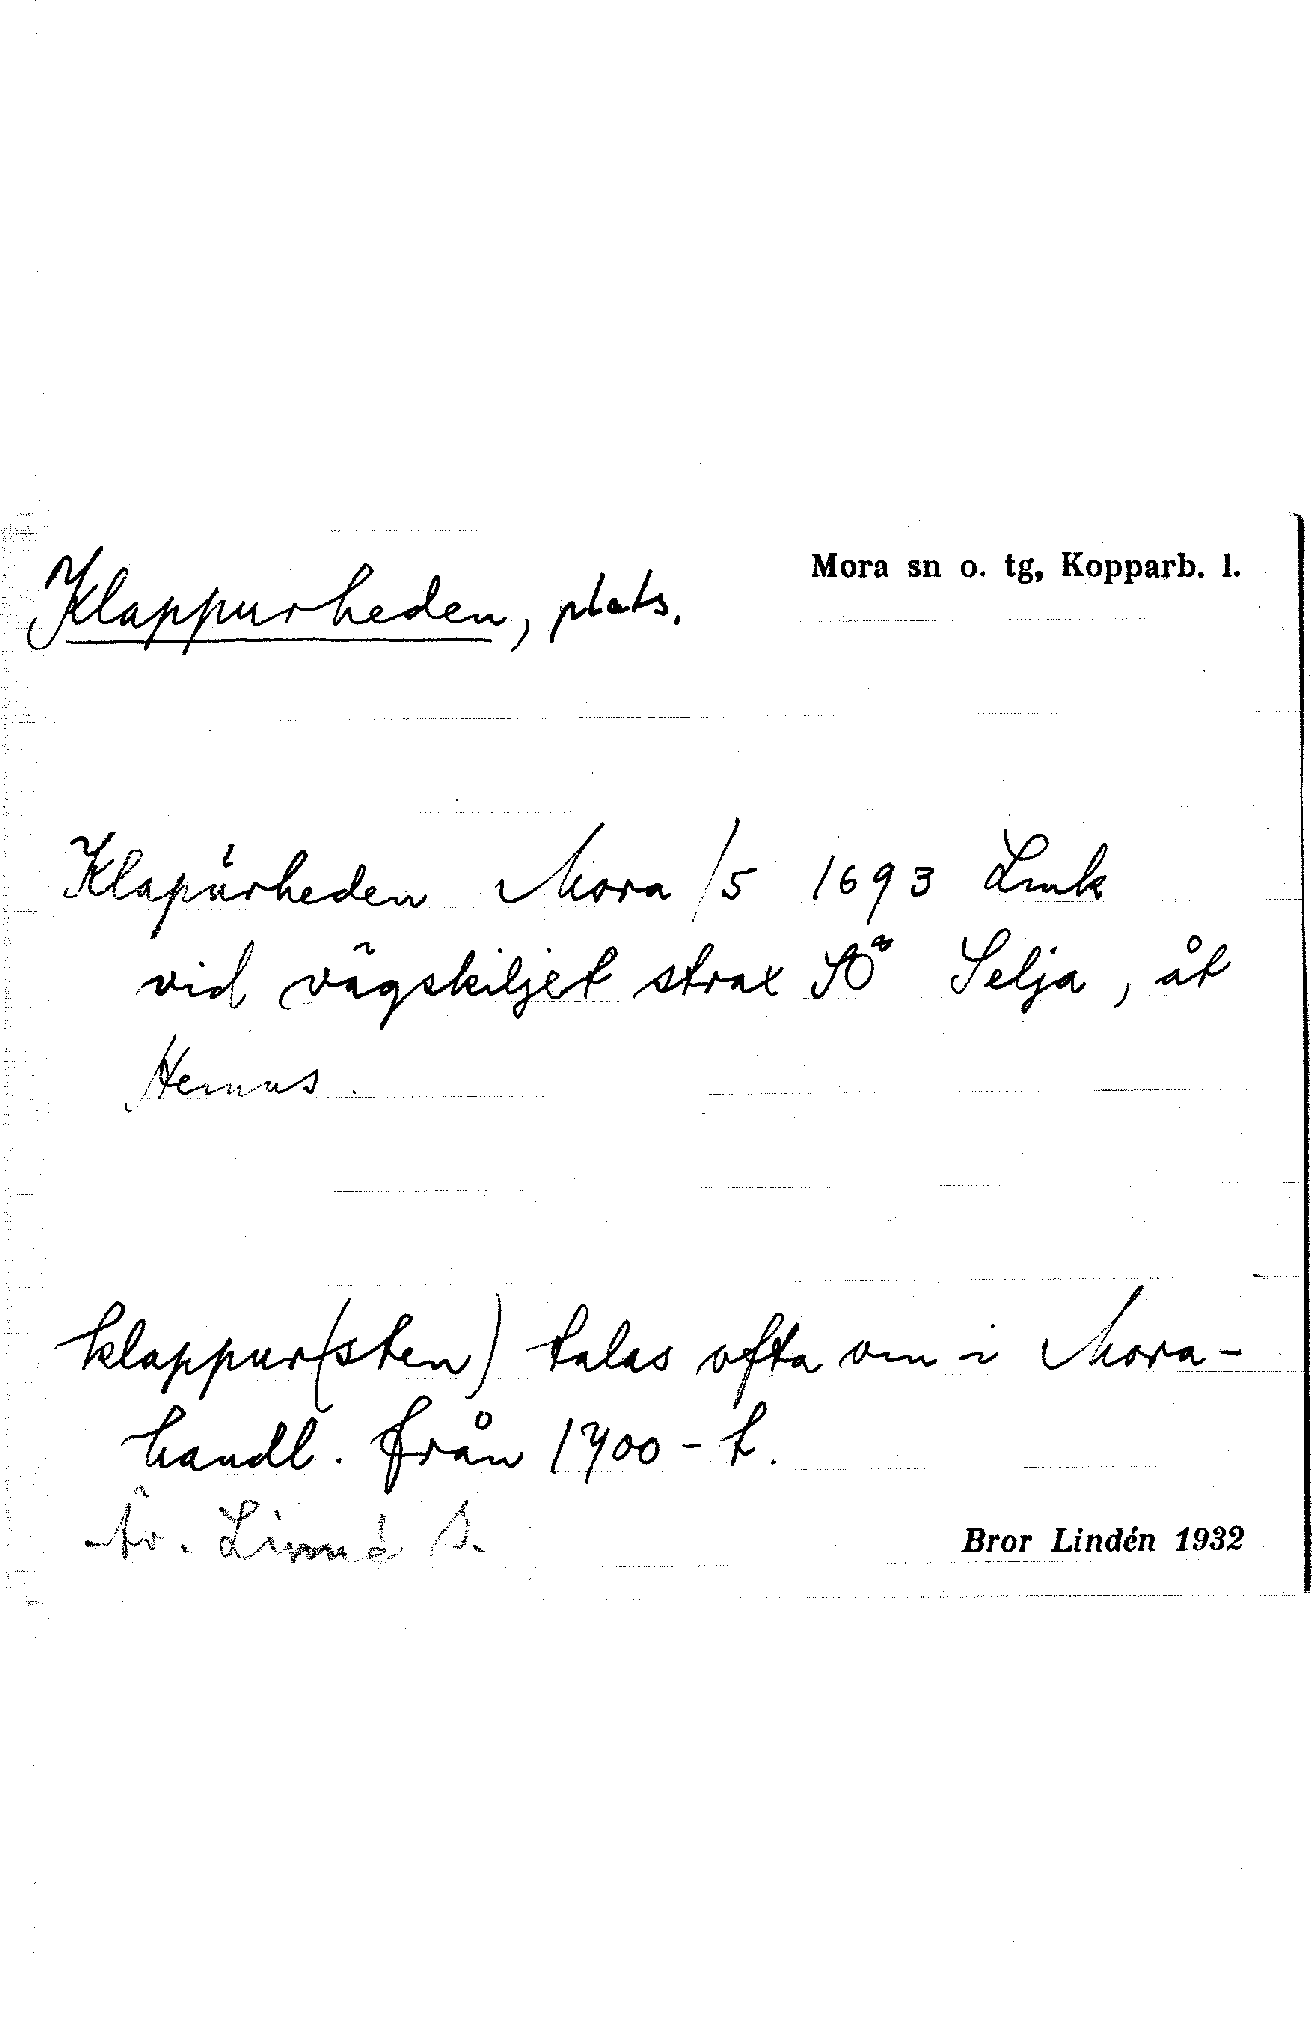 Mora sn o. tg, Kopparb. l.
Klappurheden, plats.
Klapúrheden Mora /5 1693 Lmk
vid vägskiljet strax SO Selja, åt
Hemus.
klappur(sten) talas ofta om i Mora-
handl. från 1700-t.
Äv. Linné S.
Bror Lindén 1932